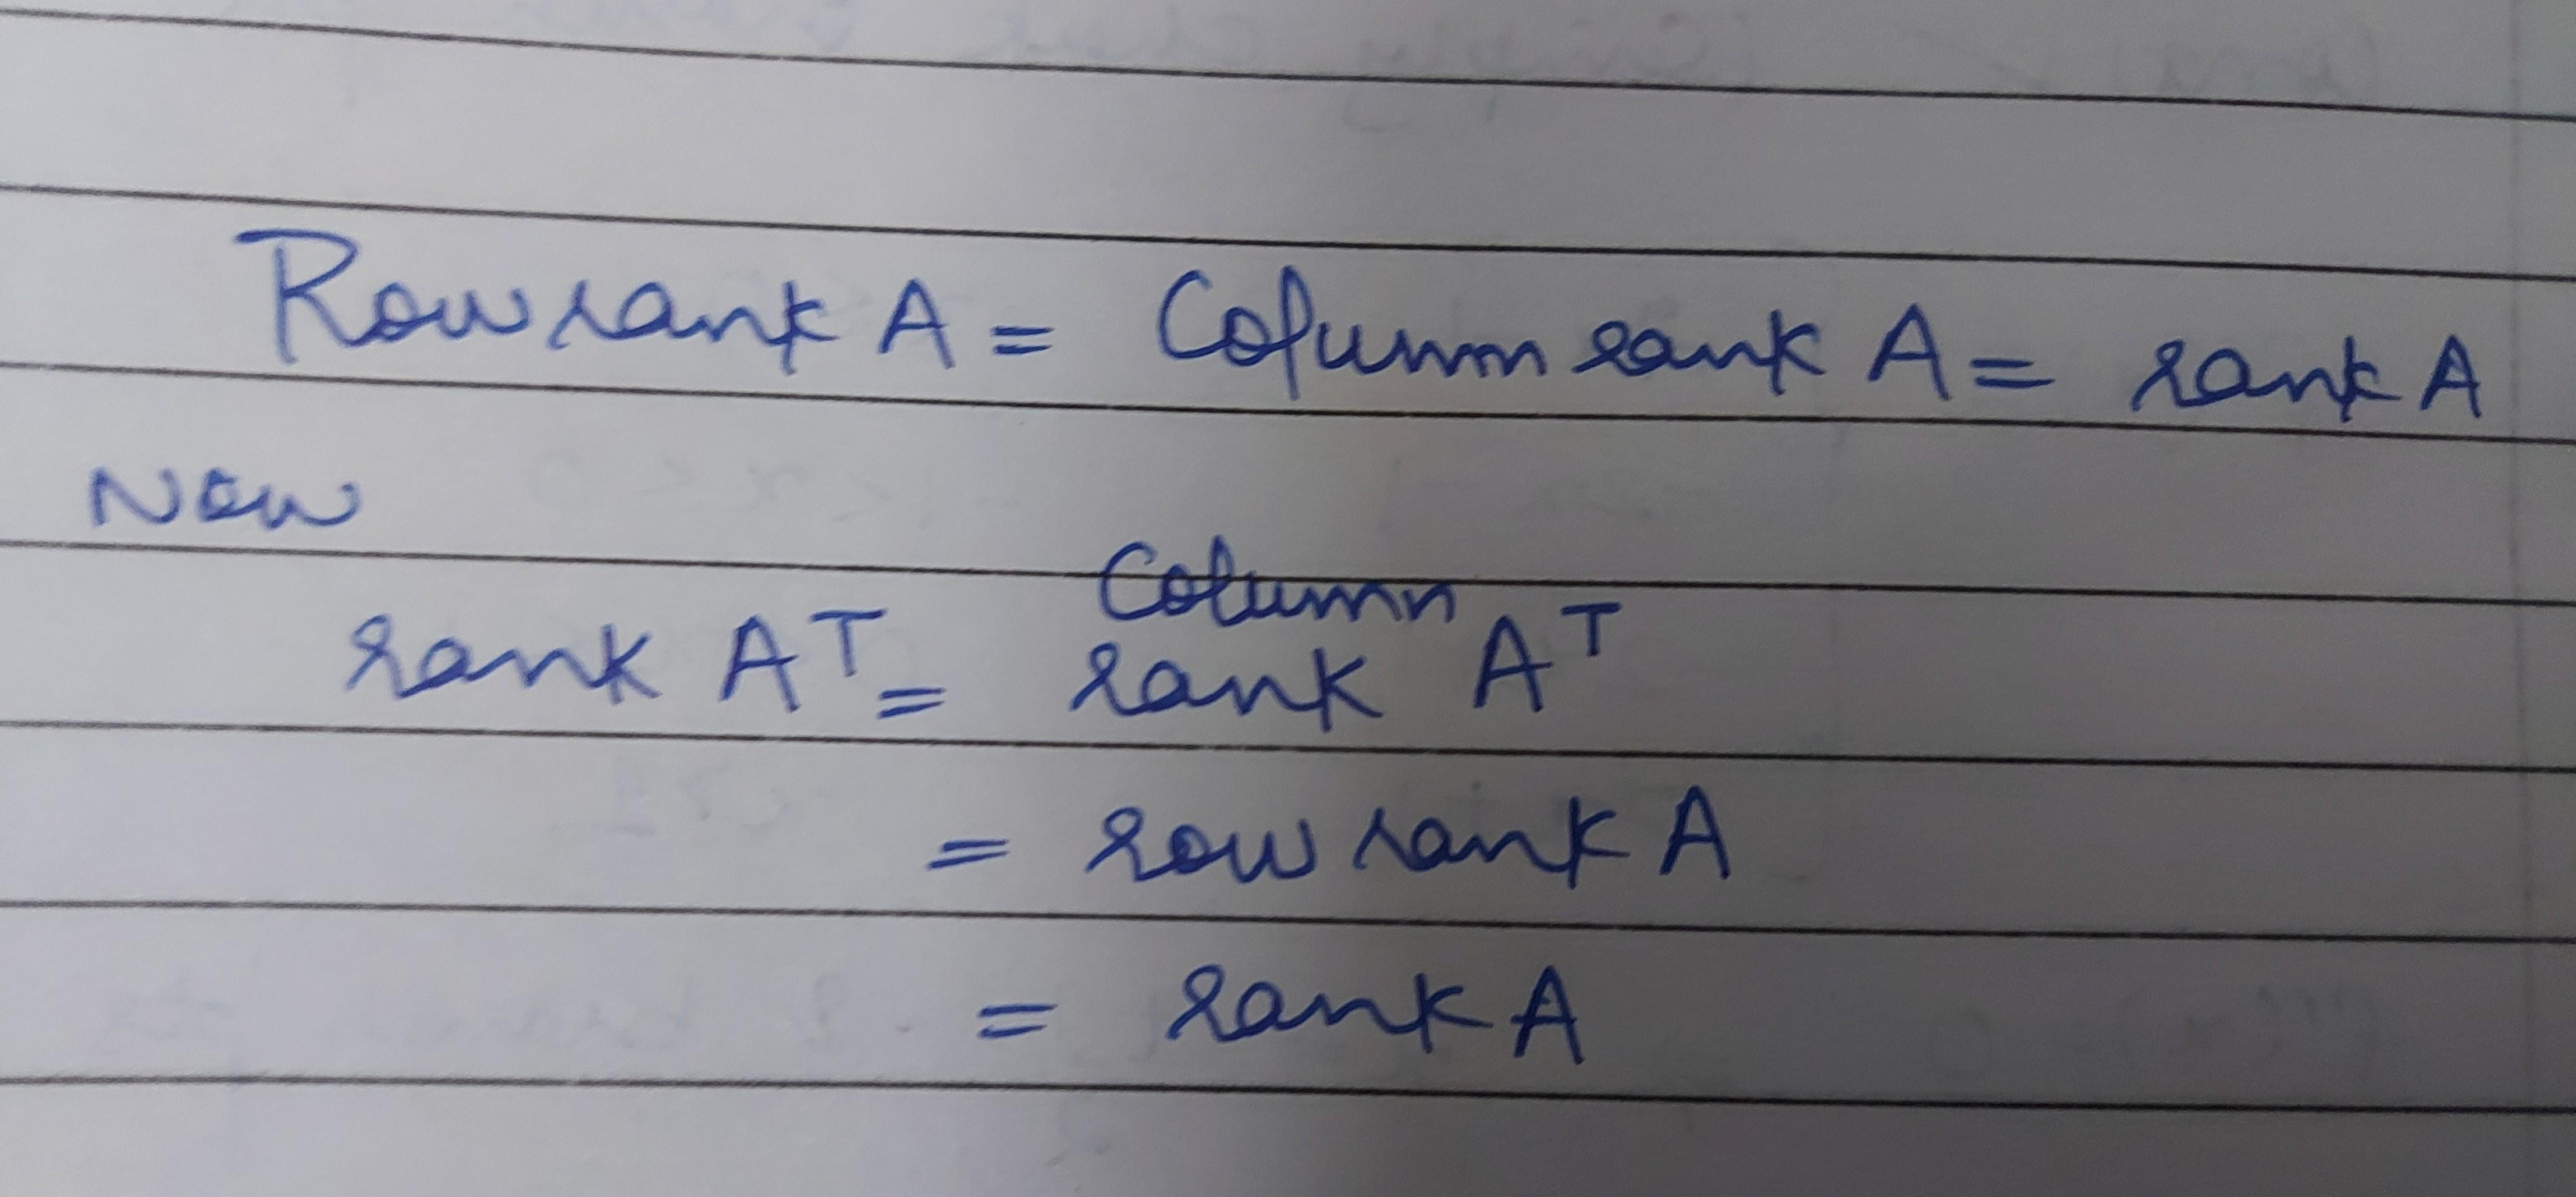 Row rank A = Column rank A = rank A
Now
rank Aᵀ = Column rank Aᵀ
= row rank A
= rank A